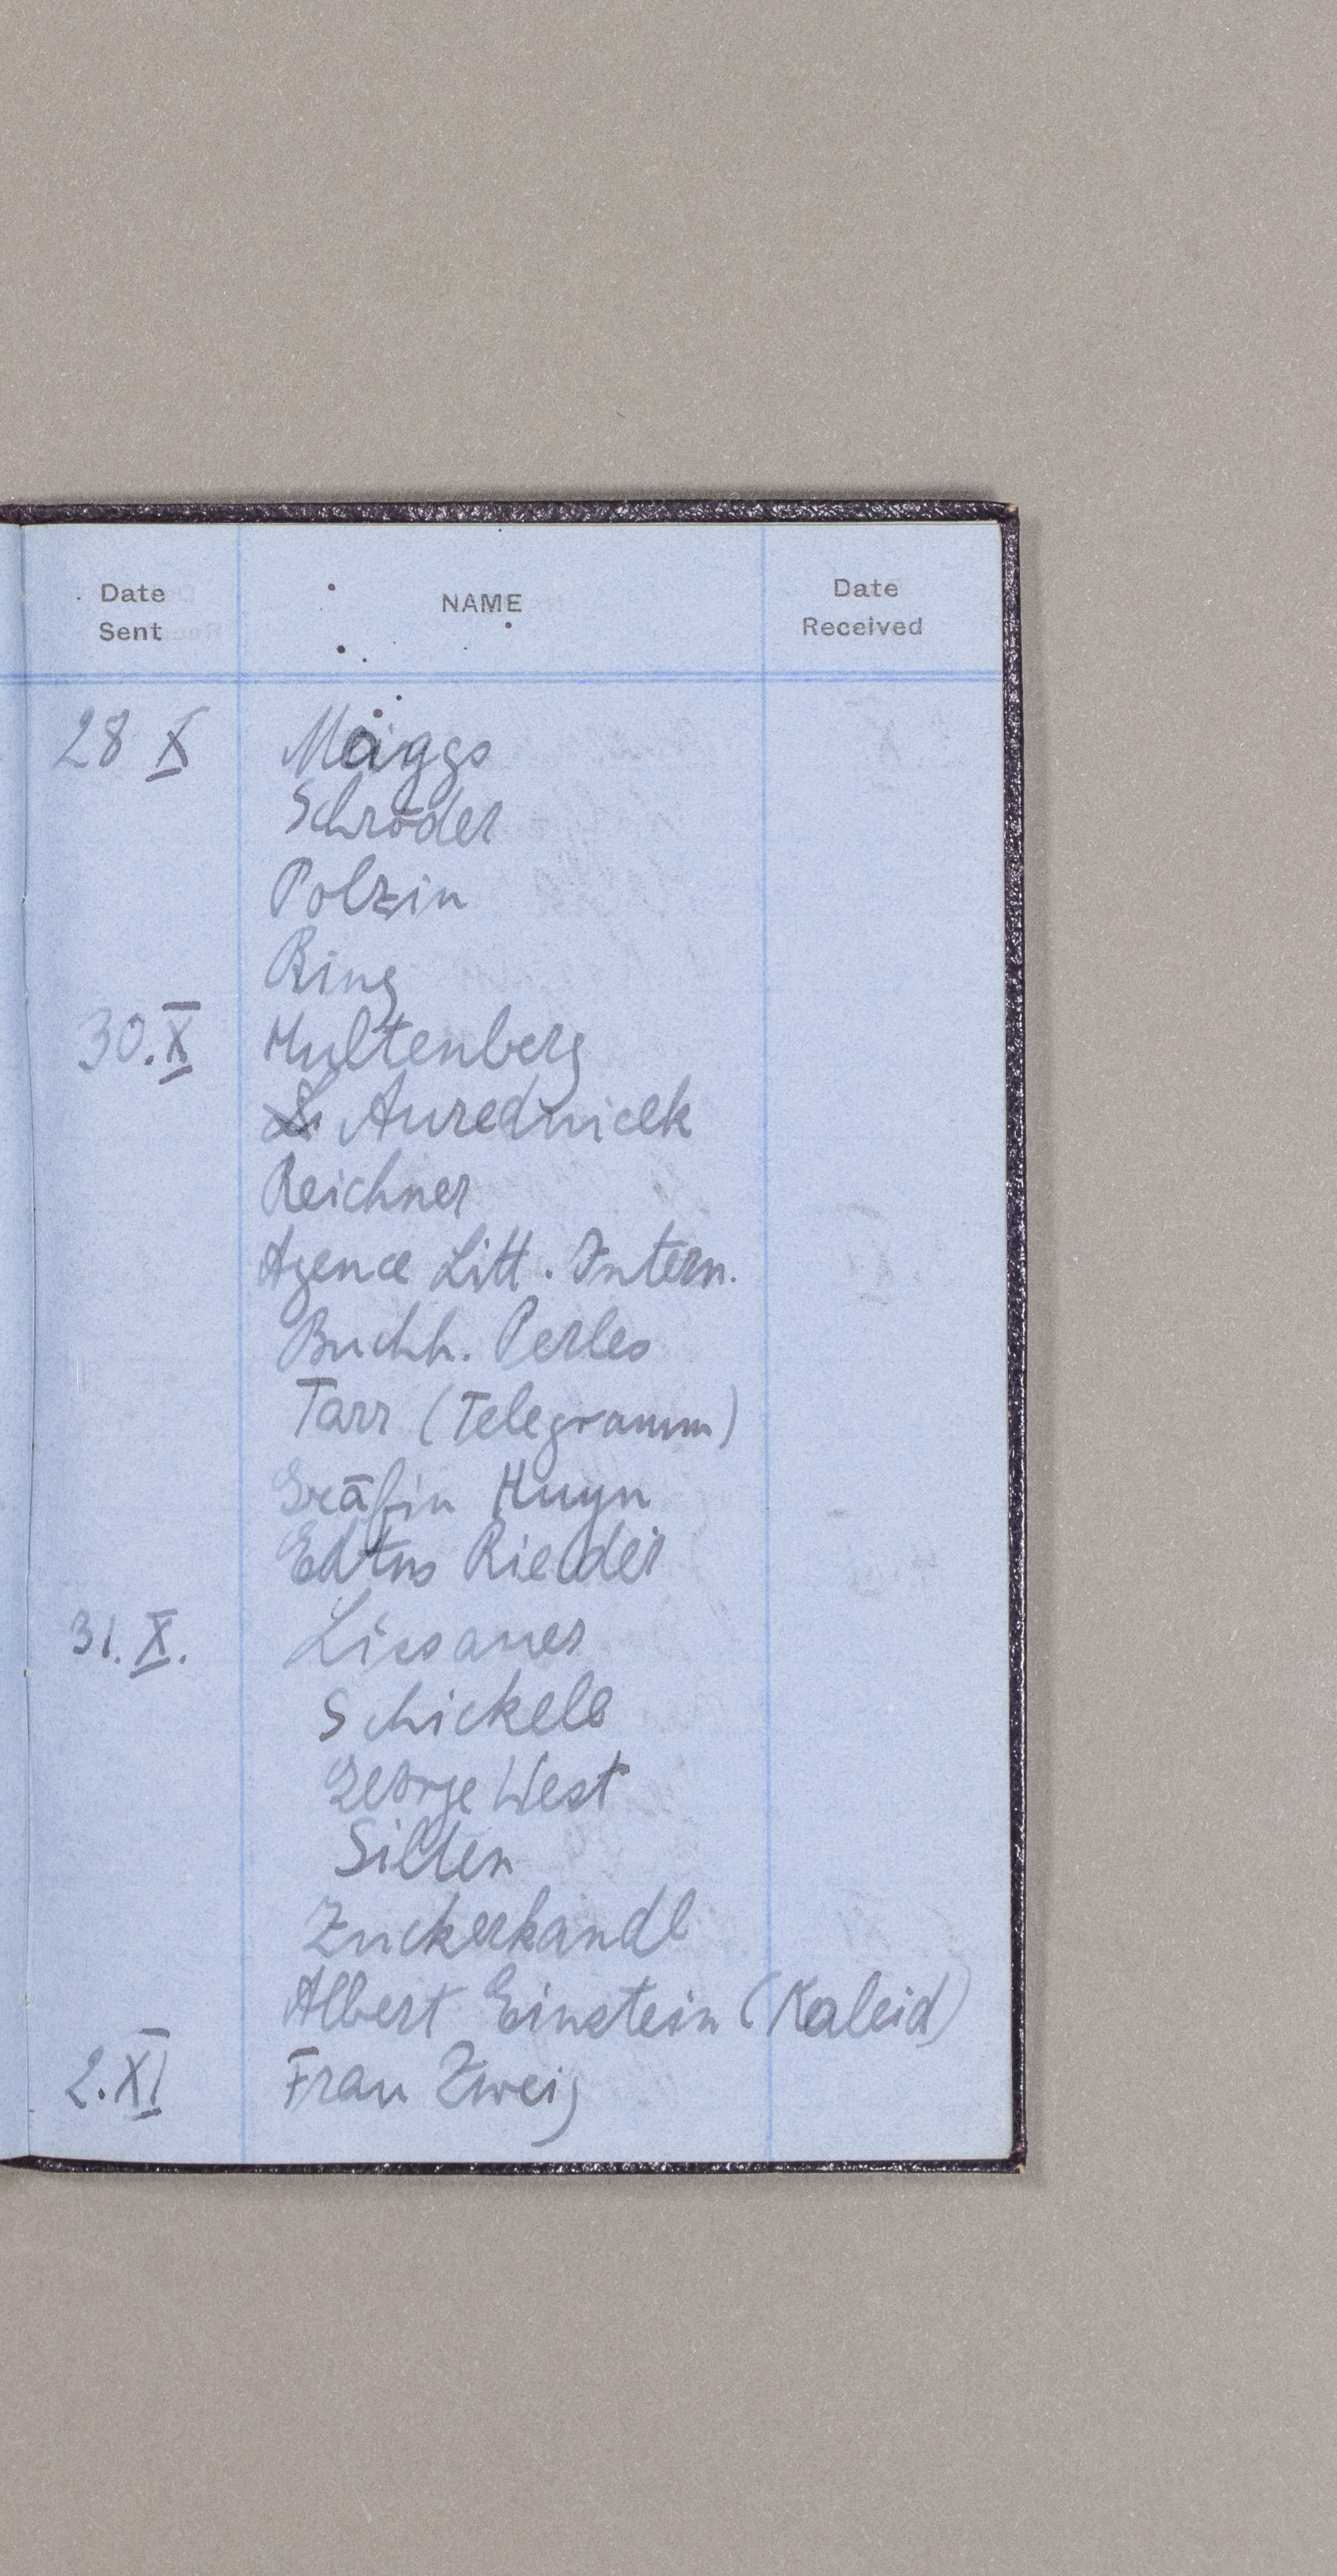 Date Sent NAME Date Received
28 X Maggs
Schröder
Polzin
Ring
30. X Multenberg
Aurednicek
Reichner
Agence Litt. Intern.
Buchh. Perles
Tarr (Telegramm)
Gräfin Huyn
Edtns Rieder
31. X. Lissauer
Schickele
George West
Silten
Zuckerkandl
Albert Einstein (Kaleid)
2. XI Frau Zweig